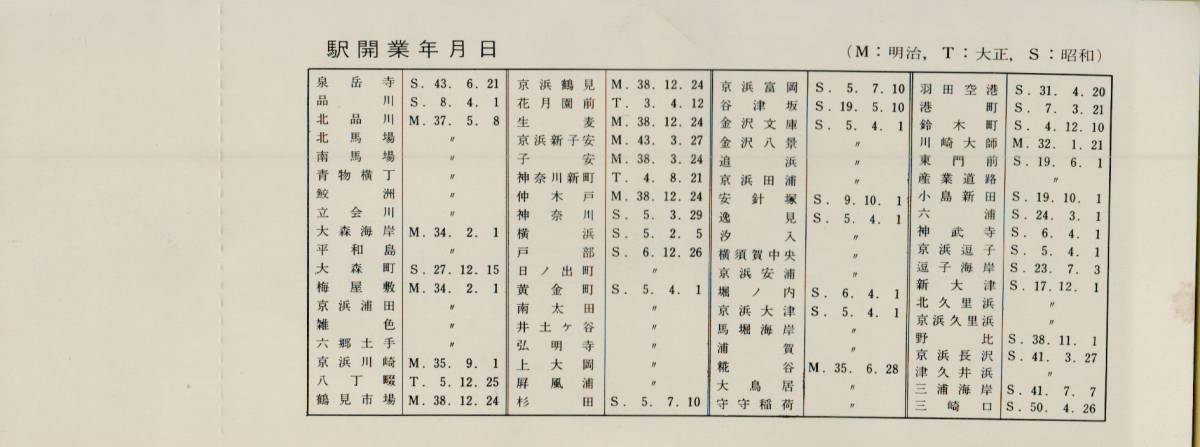 駅開業年月日
(M:明治, T:大正, S:昭和)
泉岳寺 S. 43. 6. 21
品川 S. 8. 4. 1
北品川 M. 37. 5. 8
北馬場 〃
南馬場 〃
青物横丁 〃
鮫洲 〃
立会川 〃
大森海岸 M. 34. 2. 1
平和島 〃
大森町 S. 27. 12. 15
梅屋敷 M. 34. 2. 1
京浜蒲田 〃
雑色 〃
六郷土手 〃
京浜川崎 M. 35. 9. 1
八丁畷 T. 5. 12. 25
鶴見市場 M. 38. 12. 24
京浜鶴見 M. 38. 12. 24
花月園前 T. 3. 4. 12
生麦 M. 38. 12. 24
京浜新子安 M. 43. 3. 27
子安 M. 38. 3. 24
神奈川新町 T. 4. 8. 21
仲木戸 M. 38. 12. 24
神奈川 S. 5. 3. 29
横浜 S. 5. 2. 5
戸部 S. 6. 12. 26
日ノ出町 〃
黄金町 S. 5. 4. 1
南太田 〃
井土ヶ谷 〃
弘明寺 〃
上大岡 〃
屛風浦 〃
杉田 S. 5. 7. 10
京浜富岡 S. 5. 7. 10
谷津坂 S. 19. 5. 10
金沢文庫 S. 5. 4. 1
金沢八景 〃
追浜 〃
京浜田浦 〃
安針塚 S. 9. 10. 1
逸見 S. 5. 4. 1
汐入 〃
横須賀中央 〃
京浜安浦 〃
堀ノ内 S. 6. 4. 1
京浜大津 S. 5. 4. 1
馬堀海岸 〃
浦賀 〃
糀谷 M. 35. 6. 28
大鳥居 〃
守守稲荷 〃
羽田空港 S. 31. 4. 20
港町 S. 7. 3. 21
鈴木町 S. 4. 12. 10
川崎大師 M. 32. 1. 21
東門前 S. 19. 6. 1
産業道路 〃
小島新田 S. 19. 10. 1
六浦 S. 24. 3. 1
神武寺 S. 6. 4. 1
京浜逗子 S. 5. 4. 1
逗子海岸 S. 23. 7. 3
新大津 S. 17. 12. 1
北久里浜 〃
京浜久里浜 〃
野比 S. 38. 11. 1
京浜長沢 S. 41. 3. 27
津久井浜 〃
三浦海岸 S. 41. 7. 7
三崎口 S. 50. 4. 26